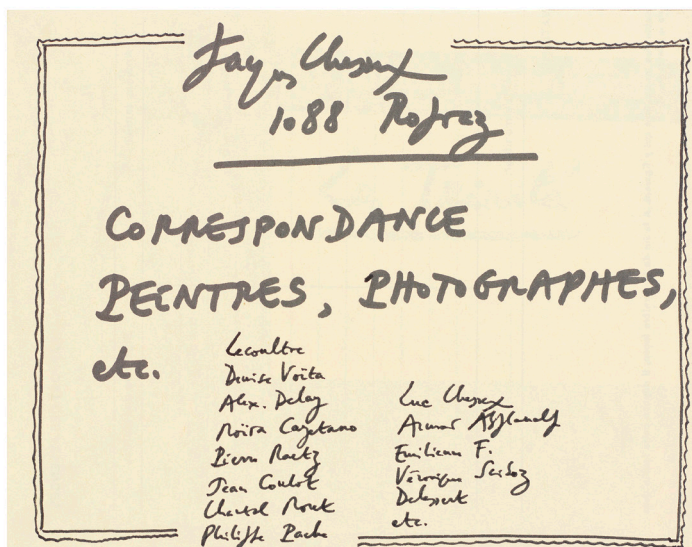 Jacques Chessex
1088 Ropraz
CORRESPONDANCE
PEINTRES, PHOTOGRAPHES,
etc.
Lecoultre
Denise Voïta
Alex. Delay
Moïra Cayetano
Pierre Raetz
Jean Coulot
Chantal Moret
Philippe Pache
Luc Chessex
Emilienne F.
Véronique
Delessert
etc.